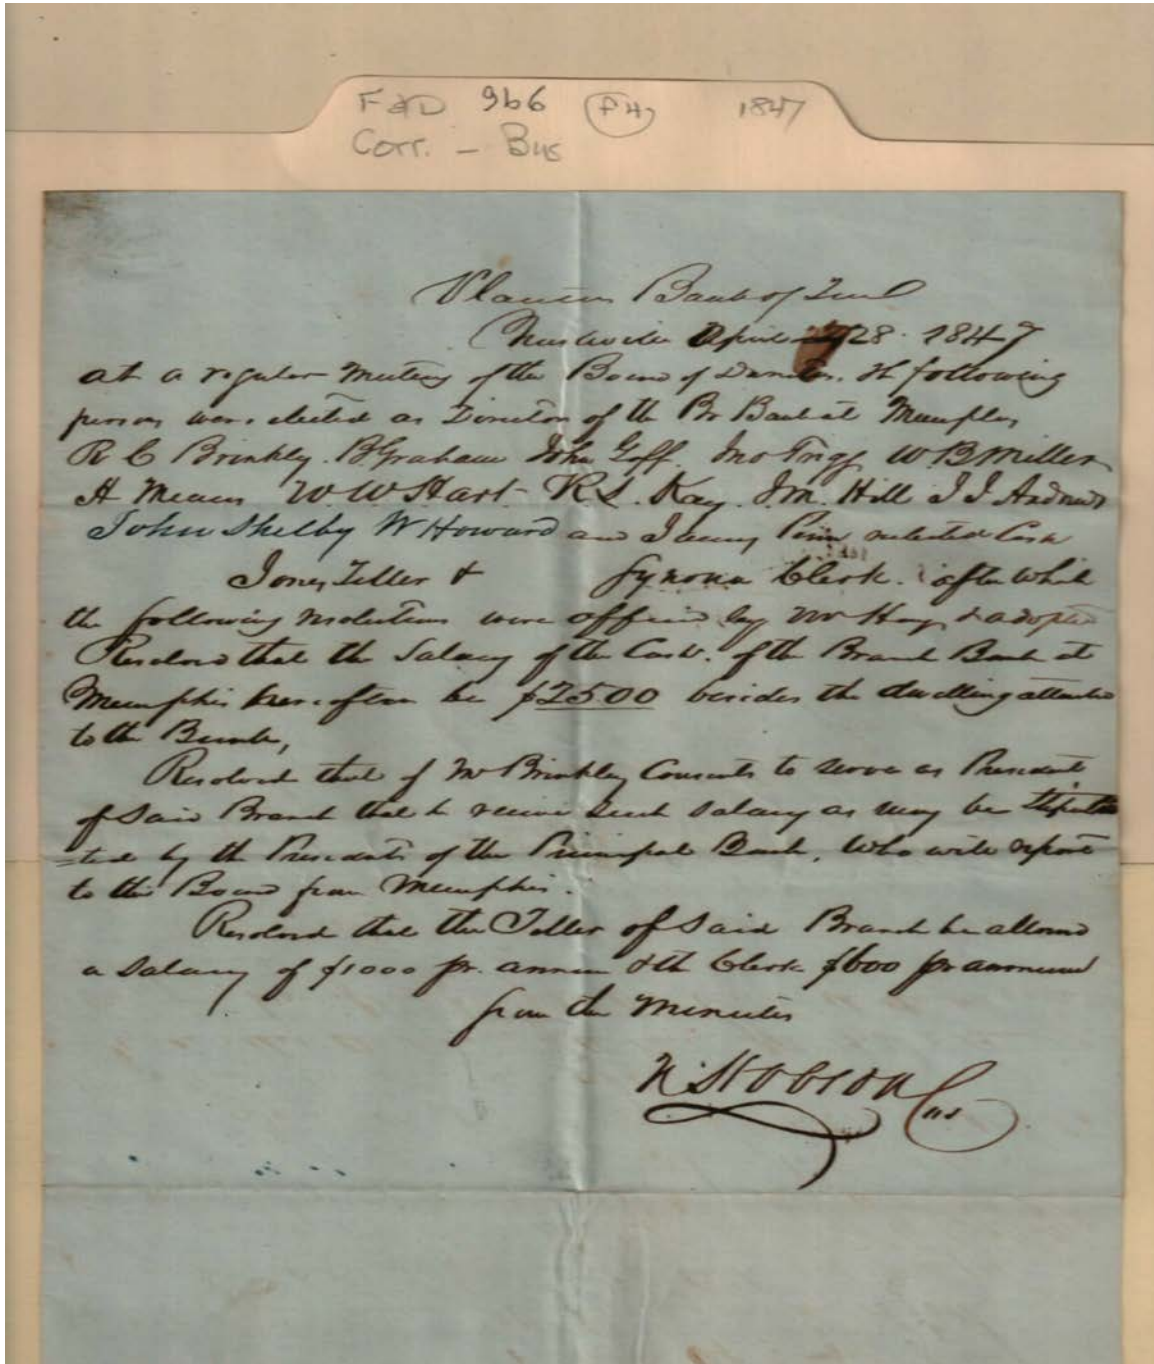 F&D 966 (f4) 1847
Corr. - Bus
Planters Bank of Tenn
Nashville April 28. 1847
at a regular meeting of the Board of Directors. the following
persons were elected as Directors of the Br Bank at Memphis
R C Brinkley. B Graham John Goff. Jno Trigg W B Miller
H Means W. W. Hart - R. S. Kay. J. M. Hill J J Andrews
John Shelby W Howard and James Penn reelected Cash
Jones Teller & Fyrona Clerk. after which
the following resolutions were offered by Mr Hays & adopted
Resolved that the Salary of the Cashr. of the Branch Bank at
Memphis hereafter be $2500 besides the dwelling attached
to the Bank,
Resolved that if Mr Brinkley Consents to serve as President
of Said Branch that he receive such salary as may be stipula
=ted by the President of the Principal Bank, who will report
to this Board from Memphis.
Resolved that the Teller of Said Branch be allowed
a salary of $1000 pr. annum & the Clerk $600 pr annum
from the Minutes
N. Hobson Cas